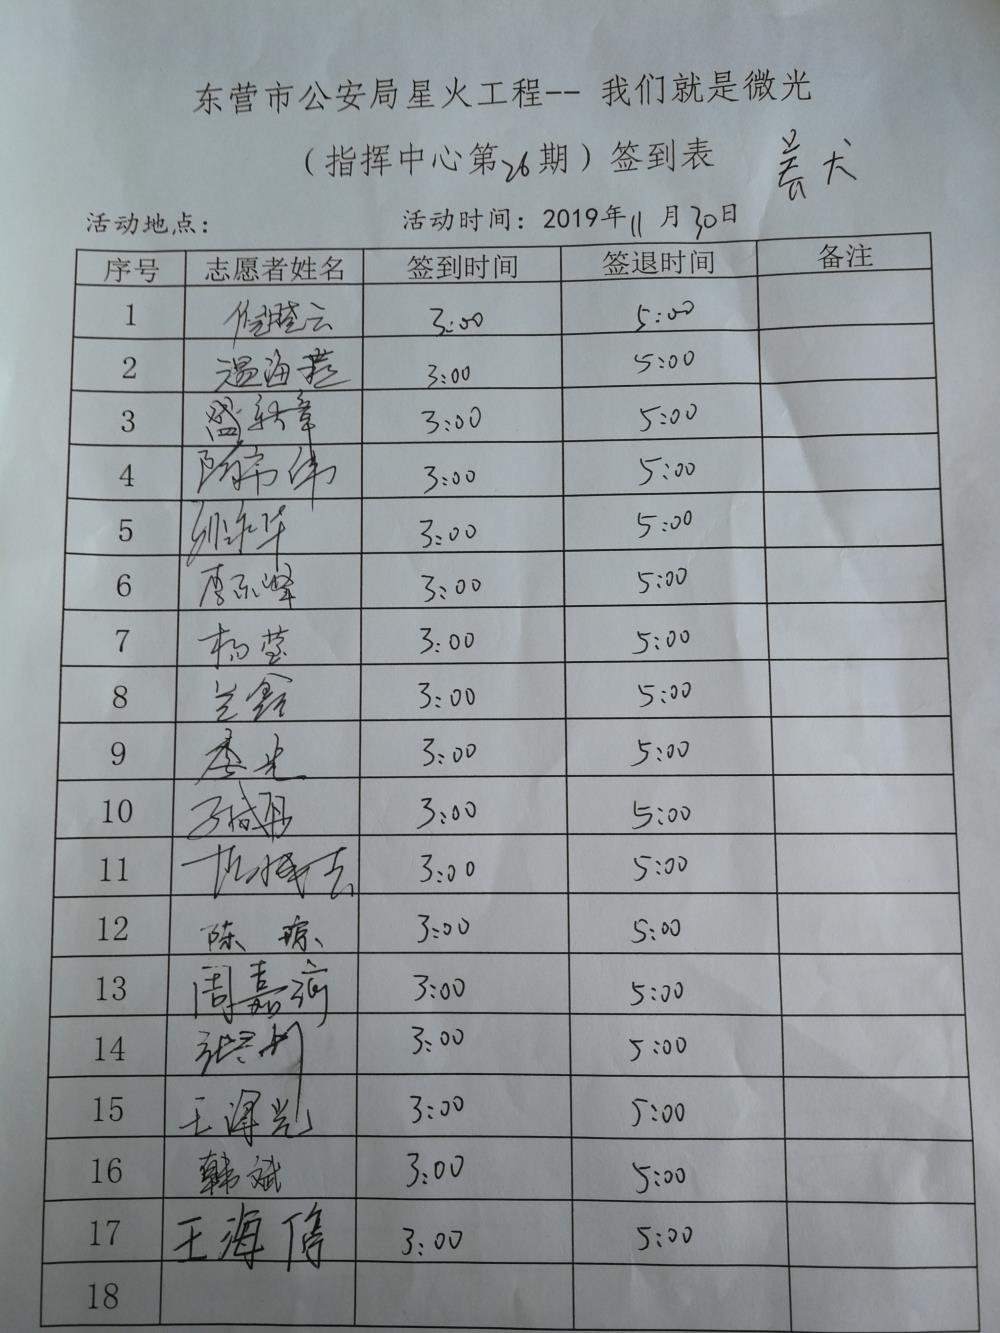 东营市公安局星火工程-- 我们就是微光
(指挥中心第26期)签到表 养犬
活动地点: 活动时间: 2019年11月30日
序号 志愿者姓名 签到时间 签退时间 备注
1 3:00 5:00
2 温海燕 3:00 5:00
3 盛轶章 3:00 5:00
4 3:00 5:00
5 3:00 5:00
6 李东峰 3:00 5:00
7 杨莹 3:00 5:00
8 兰鑫 3:00 5:00
9 3:00 5:00
10 3:00 5:00
11 3:00 5:00
12 陈琼 3:00 5:00
13 周嘉 3:00 5:00
14 3:00 5:00
15 王泽 3:00 5:00
16 韩斌 3:00 5:00
17 王海 3:00 5:00
18